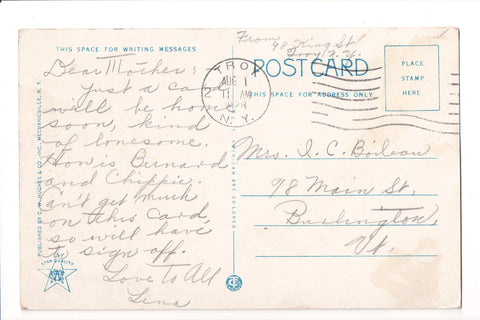 From
98 King St
Troy N.Y.
THIS SPACE FOR WRITING MESSAGES
POST CARD
THIS SPACE FOR ADDRESS ONLY
PLACE
STAMP
HERE
TROY
AUG 1
11 AM
N.Y.
Dear Mother:
Just a card
will be home
soon, kind
of lonesome.
How is Bernard
and Chippie.
Can't get much
on this card,
so will have
to sign off.
Love To All
Lena
Mrs. I. C. Boileau
98 Main St,
Burlington,
Vt.
PUBLISHED BY C. W. HUGHES & CO., INC., MECHANICVILLE, N. Y.
STAR QUALITY
AMERICAN ART COLORED